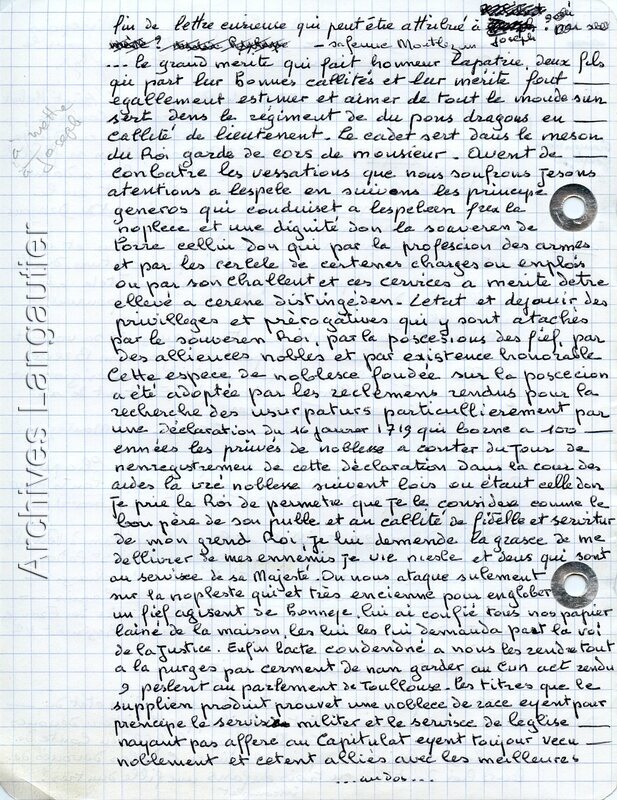 fin de lettre curieuse qui peut être attribué à
mère ? - sa femme Montlezun Joseph
... le grand merite qui fait honneur Lapatrie, deux fils
qui part lur Bonnes callités et lur mérite font
egallement estimer et aimer de tout le monde sun
sert dens le régiment de du pons dragons en
callité de lieutenant. Le cadet sert dans le meson
du Roi garde de cors de monsieur. Avent de
conbatre les vessations que nous soufrons jesons
atentions a lespele en suivens les principe
generos qui conduiset a
noplece et une dignité don la souveren de
Torre cellui don qui par la profescion des armes
et par les cercle de certenes charges ou emplois
ou par son challent et ces cervices a merite detre
ellevé a cerene distingéden. Letat et dejouir des
privilleges et prèrogatives qui y sont atachès
par le souveren Roi, par la poscesions des fief, par
des alliences nobles et par existence honorable
Cette espece de noblesce fondée sur la poscecion
a été adoptée par les reclemens rendus pour la
recherche des usurpaturs particullierement par
une déclaration du 16 janvier 1719 qui borne a 100
ennées les privés de noblesse a conter du Jour de
nenregustremeu de cette déclaration dans la cour des
aides la vrè noblesse suivent lois ou étaut celle don
Je prie le Roi de permetre que je le considere comme le
bon père de son pulle et an callité de fidelle et servitur
de mon grend Roi, je lui demende la grasce de me
dellivrer de mes ennemis je vie niesle et deus qui sont
au servisce de sa Majesté. On nous ataque sulement
sur la nopleste qui et très encienne pour englober
un fief agisent de Bonneje. lui ai coufié tous nos papier
laine de la maison, les lui les lui demanda part la voi
de la Justice. Enfin lacte condendné a nous les rendre tout
a la purges par cerment de nan garder au cun act rendu
9 peslent au parlement de Toullouse. Les titres que le
supplien produit prouvet une noblece de race eyent pour
prencipe le servis militer et le servisce de leglise
nayant pas affere au Capitulat eyent toujour vecu
noblement et cetent alliés avec les meilleures
...au dos...
à mettre
à Joseph
Archives Langautier